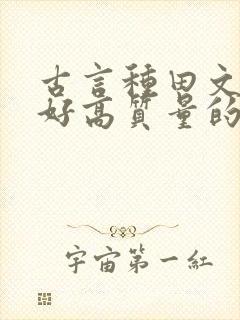 古言種田文
好高質量的
宇宙第一紅